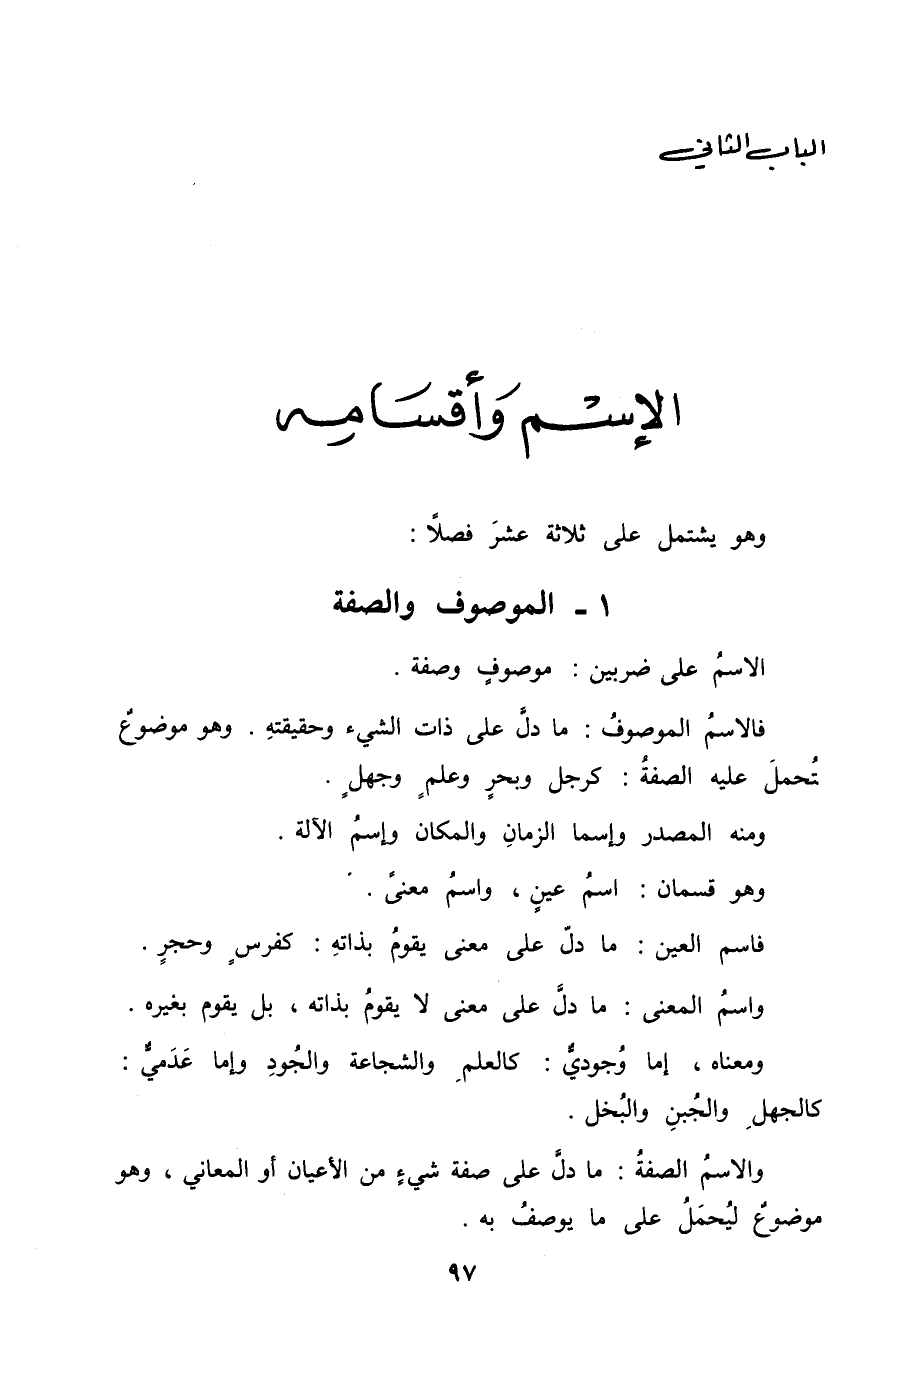 الباب الثاني
الإسْم وَأَقسَامِه
وهو يشتمل على ثلاثة عشرَ فصلًا :
١ ـ الموصوف والصفة
الاسمُ على ضربين : موصوفٍ وصفة .
فالاسمُ الموصوفُ : ما دلَّ على ذات الشيء وحقيقتهِ . وهو موضوعٌ
تُحملَ عليه الصفةُ : كرجل وبحرٍ وعلمٍ وجهلٍ .
ومنه المصدر وإسما الزمانِ والمكان وإسمُ الآلة .
وهو قسمان : اسمُ عينٍ ، واسمُ معنىً .
فاسم العين : ما دلّ على معنى يقومُ بذاتهِ : كفرسٍ وحجرٍ .
واسمُ المعنى : ما دلَّ على معنى لا يقومُ بذاته ، بل يقوم بغيره .
ومعناه ، إما وُجوديٌّ : كالعلمِ والشجاعة والجُودِ وإما عَدَميٌّ :
كالجهلِ والجُبنِ والبُخل .
والاسمُ الصفةُ : ما دلَّ على صفة شيءٍ من الأعيان أو المعاني ، وهو
موضوعٌ ليُحمَلُ على ما يوصفُ به .
٩٧